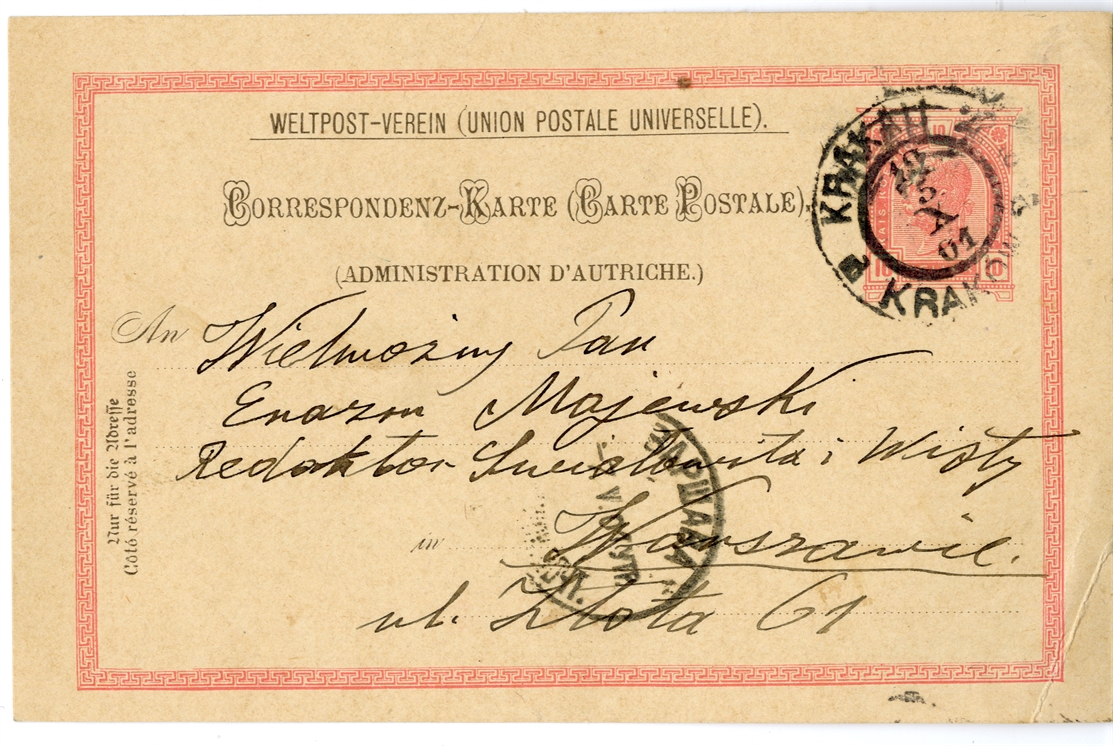 WELTPOST-VEREIN (UNION POSTALE UNIVERSELLE).
CORRESPONDENZ-KARTE (CARTE POSTALE).
(ADMINISTRATION D'AUTRICHE.)
KRAKAU 2
KRAKÓW
12 5
01
10 10
An Wielmożny Pan
Erazm Majewski
Redaktor Swiatowita i Wisły
in Warszawie.
ul. Złota 61
Nur für die Adresse
Coté réservé à l'adresse
ВАРШАВА